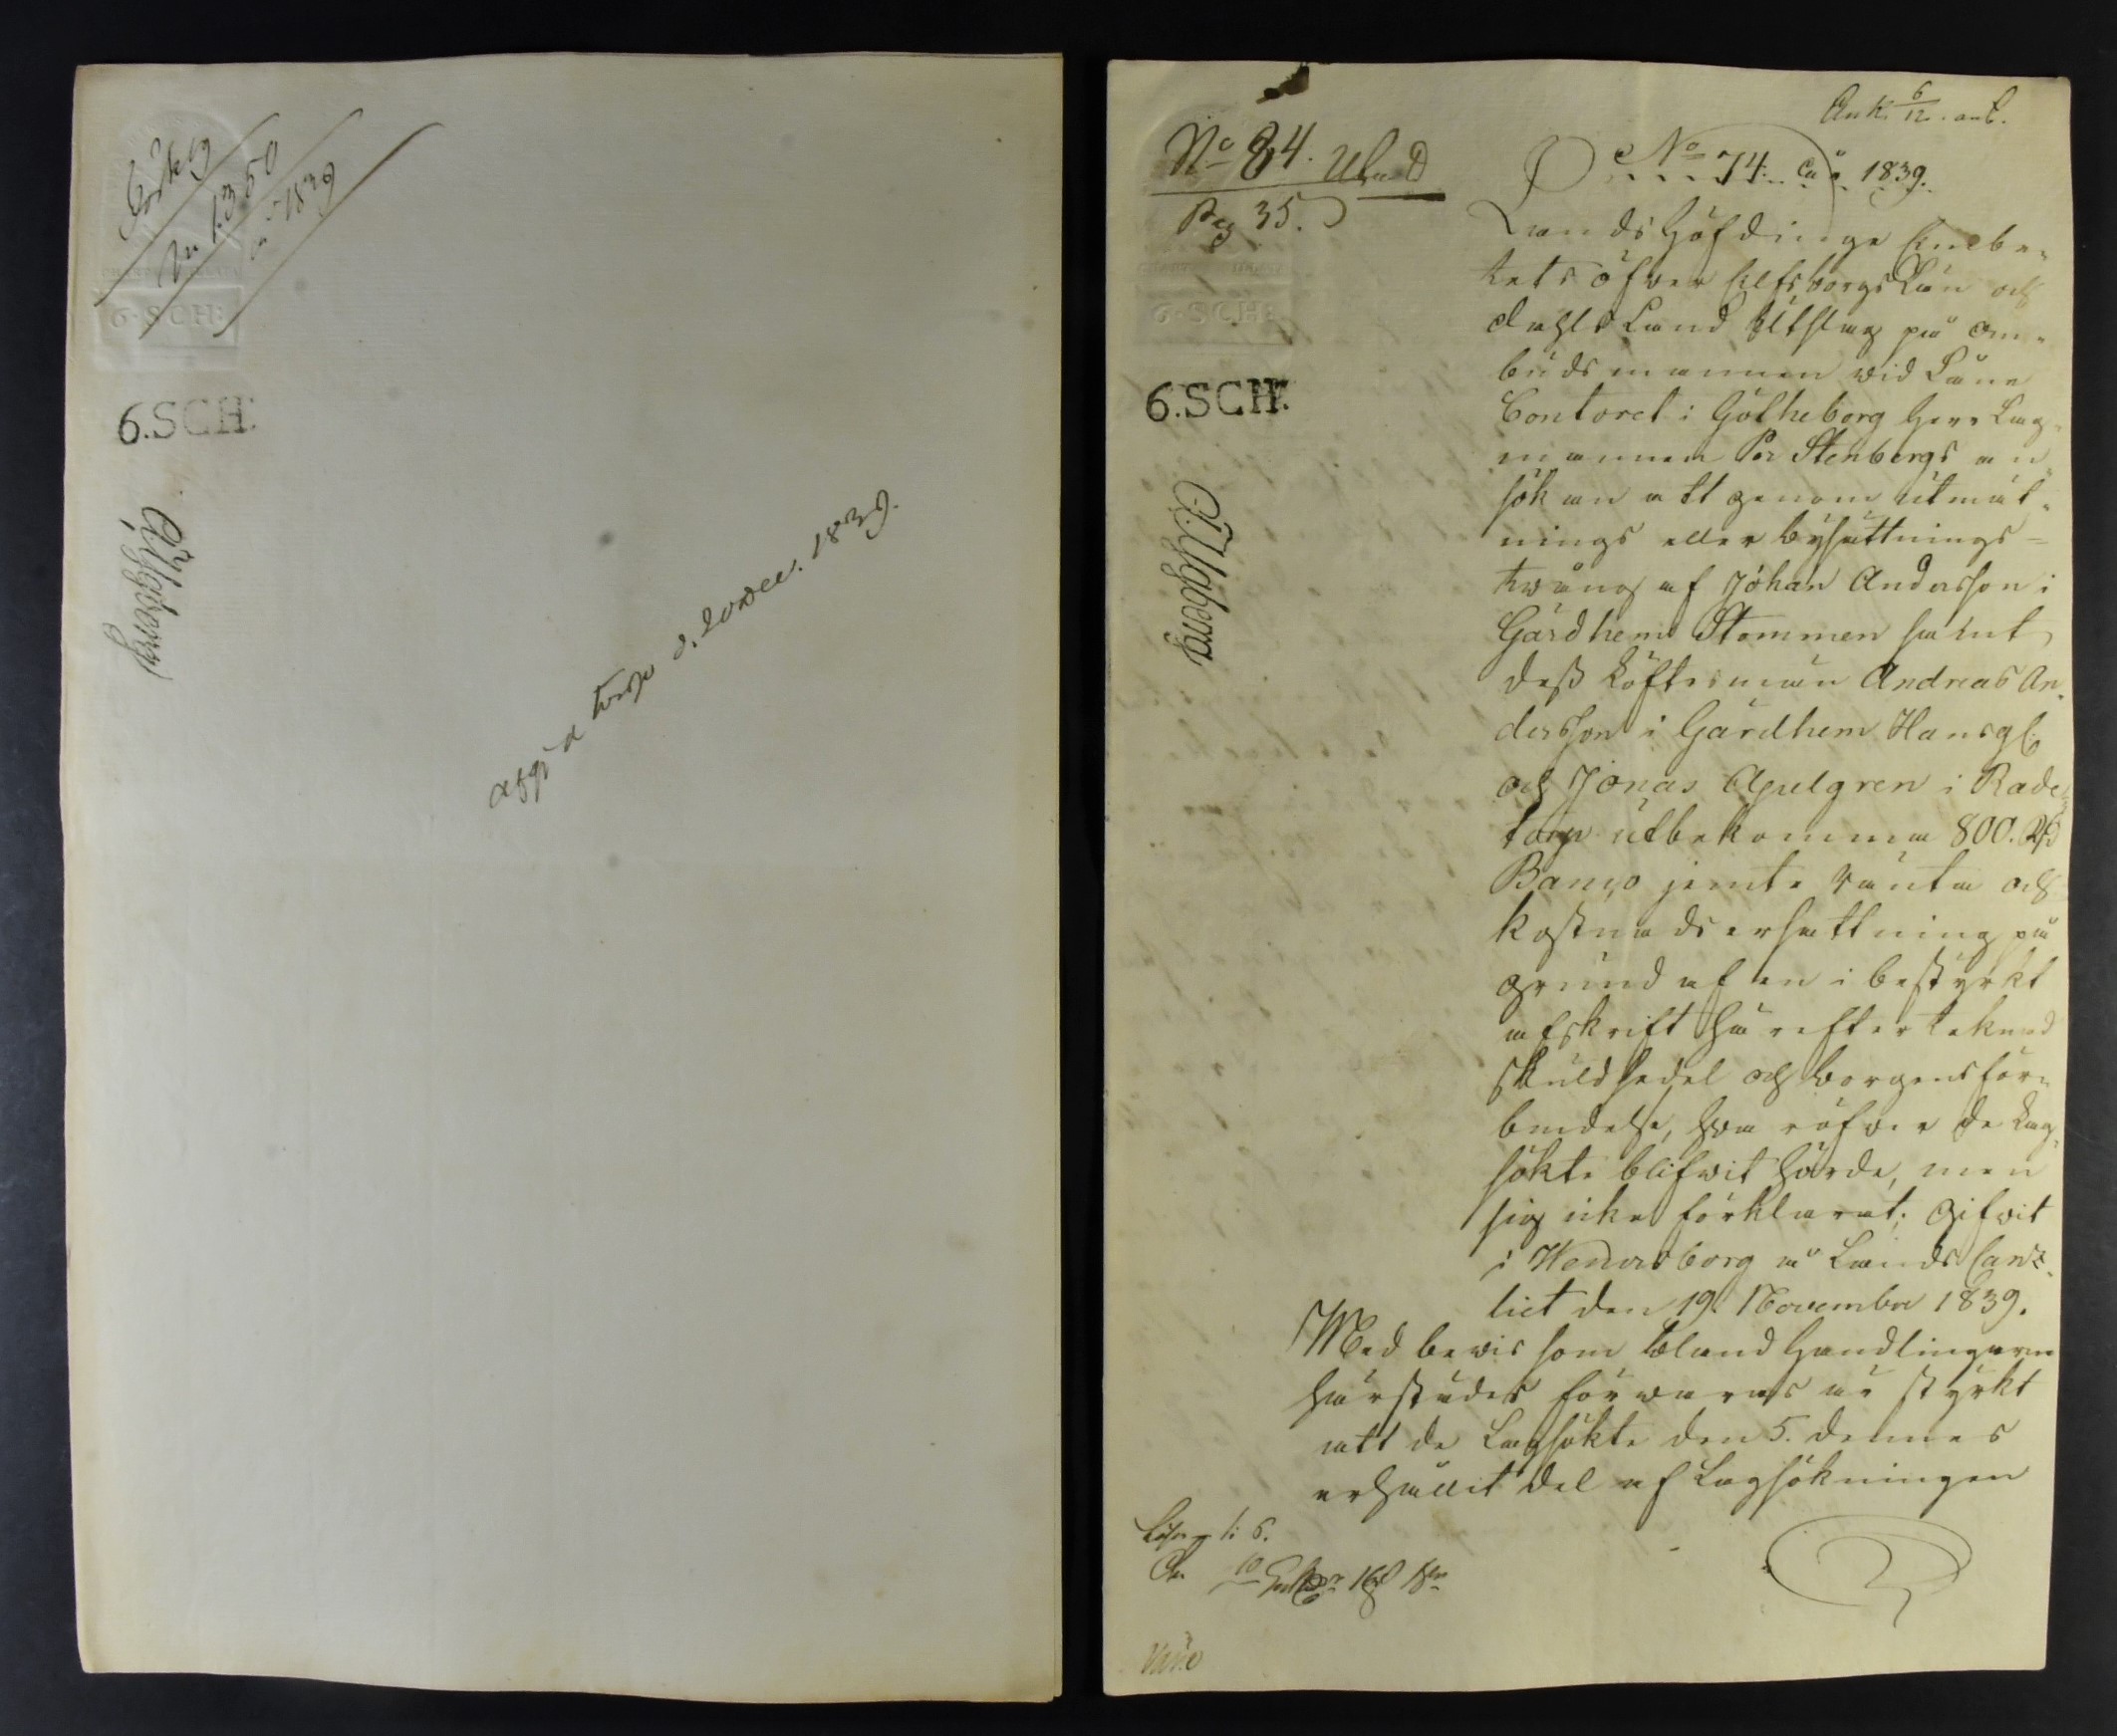 N 1350
1839
6.SCH:
6.SCH:
afgå d. 20 Decr. 1839.
Ank. 6/12. ant.
No 84.
Pag 35.
6.SCH:
6.SCH:
No 74. 1839.
LandsHöfdinge Embe-
tets öfver ElfsborgsLän och
dahlsLand Utslag på om-
budsmannen vid Låne
Contoret i Götheborg Herr Lag-
mannen Per Stenbergs an-
sökan att genom utmät-
nings eller bysättnings-
tvång af Johan Andersson i
Gärdhems Stommen samt
dess Löftesmän Andreas An-
dersson i Gärdhem Hansg.
och Jonas Apelgren i Rade-
torp utbekomma 800. Rd
Banco jemte ränta och
kostnadsersättning på
grund af en i bestyrkt
afskrift härefter teknad
skuldsedel och borgensför-
bindelse, hvaröfver de Lag-
sökte blifvit hörde, men
sig icke förklarat; Gifvit
i Wenersborg å Lands Canz-
liet den 19. November 1839.
Med bevis som bland Handlingarne
härstädes förvaras är styrkt
att de Lagsökte den 5. dennes
erhållit del af Lagsökningen
Lösen 1: 6.